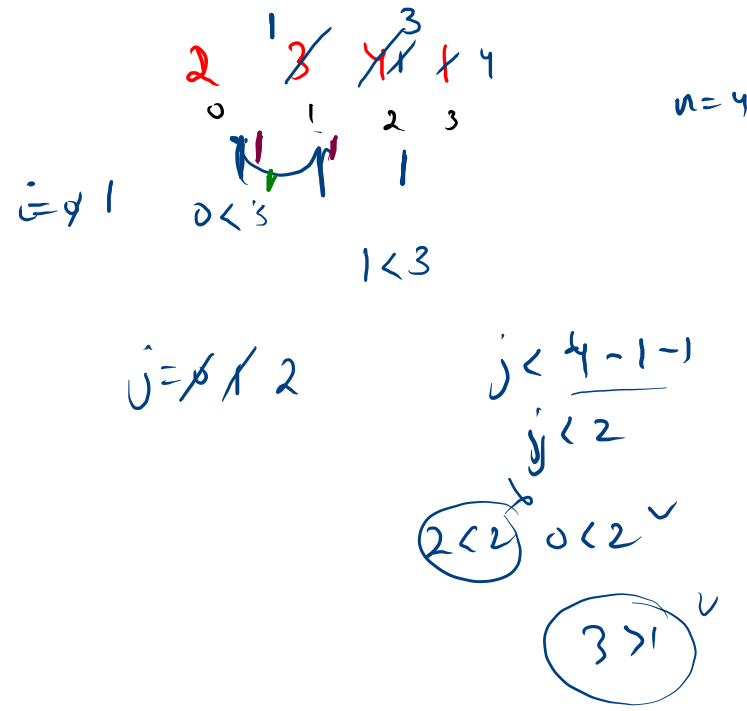 1 3
2 3 4 1 1 4
0 1 2 3
n = 4
i = 0 1
0 < 3
1
1 < 3
j = 0 1 2
j < 4 - 1 - 1
j < 2
2 < 2 0 < 2
3 > 1